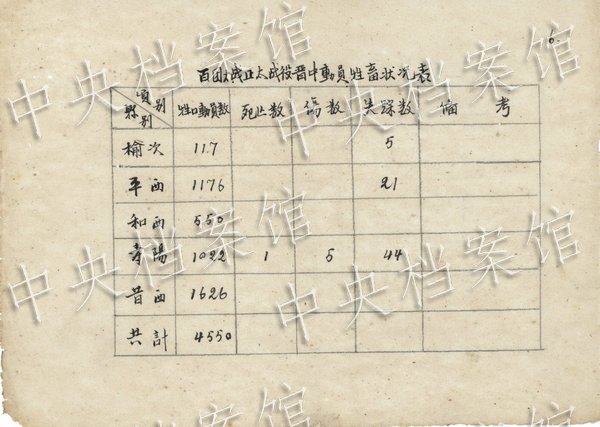 6.
百团大战正太战役晋中動員牲畜状况表
縣别 項别 牲口動員数 死亡数 傷数 失踪数 备考
榆次 117 5
平西 1176 21
和西 550
寿陽 1022 1 5 44
昔西 1626
共計 4550
中央档案馆
中央档案馆
中央档案馆
中央档案馆
中央档案馆
中央档案馆